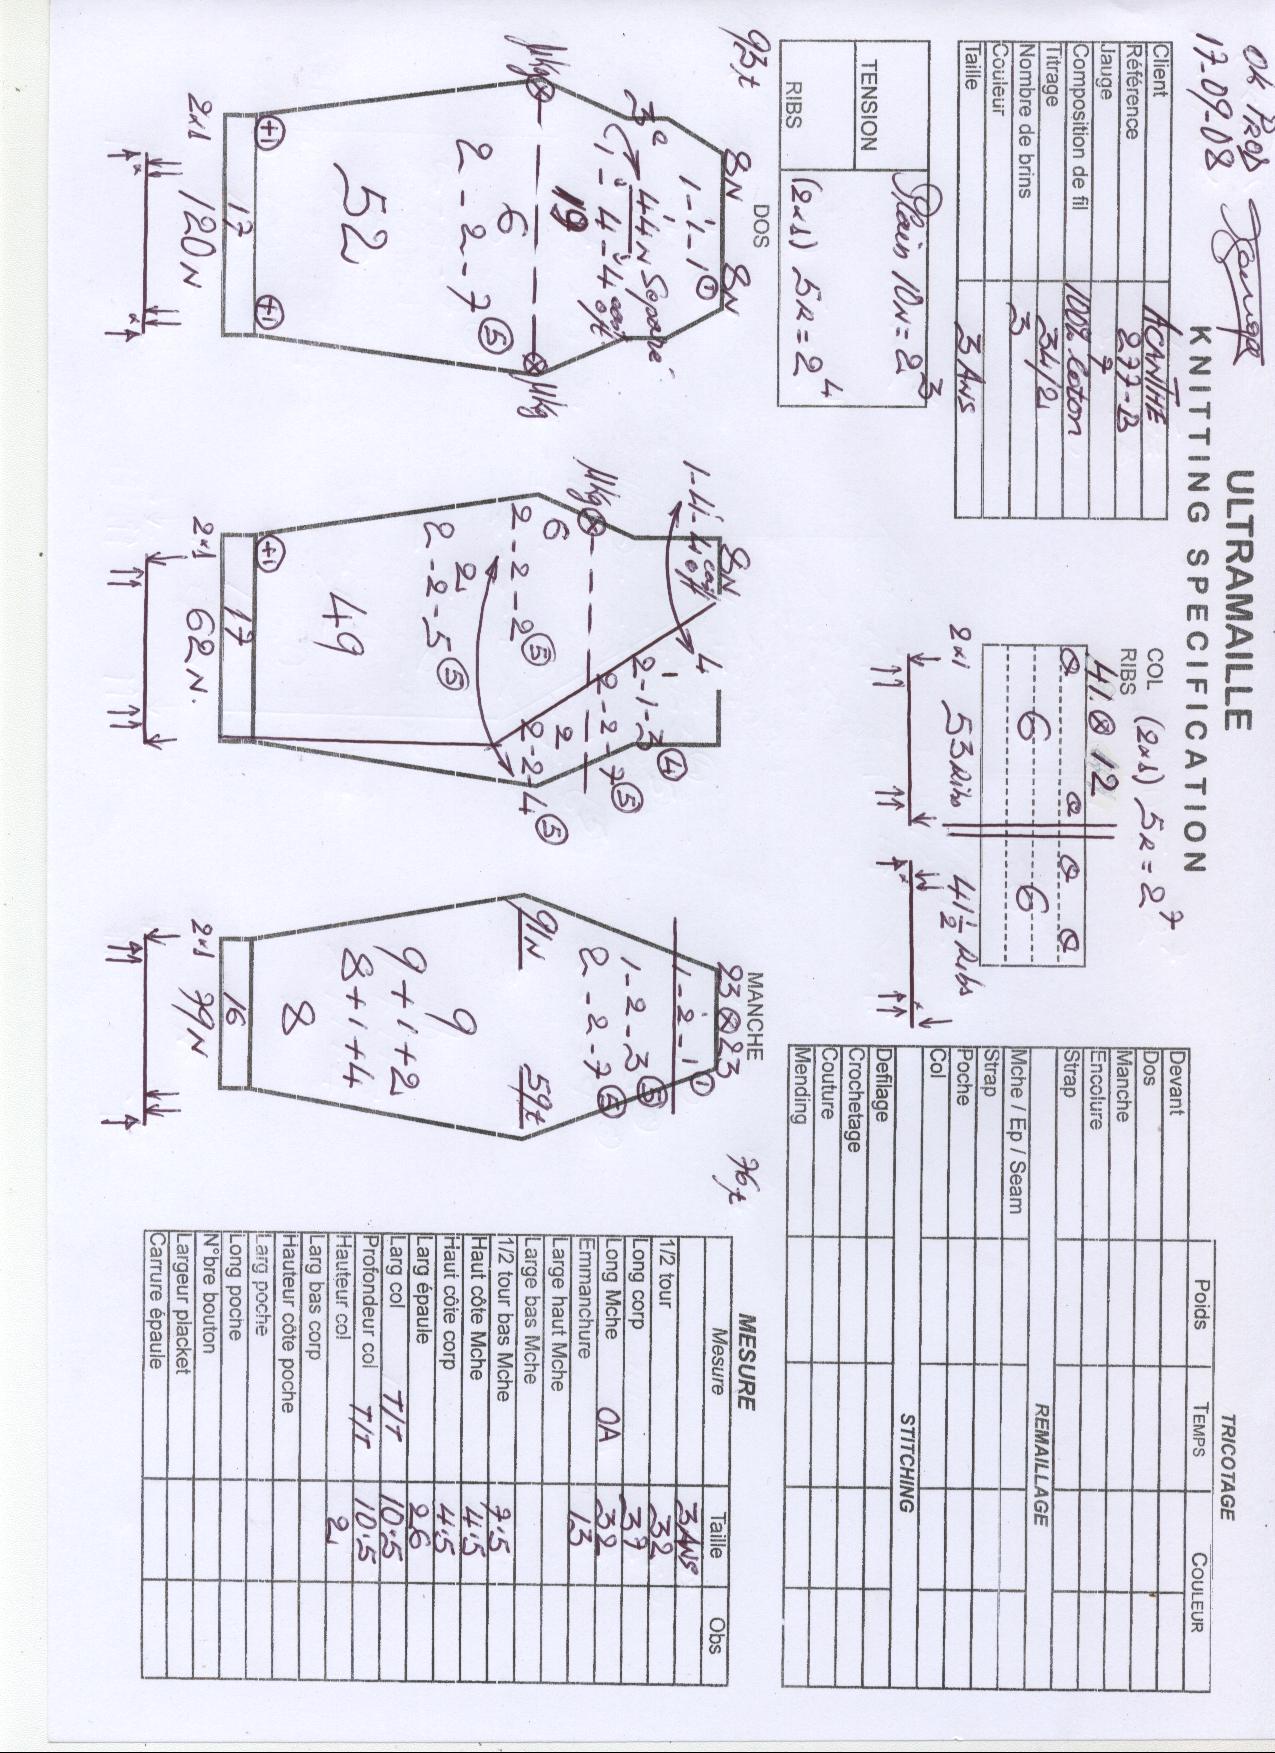 OK PROD
17-09-08
ULTRAMAILLE
KNITTING SPECIFICATION
Client ACANTHE
Référence 277-B
Jauge 7
Composition de fil 100% Coton
Titrage 34/2
Nombre de brins 3
Couleur
Taille 3 ANS
TENSION Plain 10N = 2 3
RIBS (2x1) 5R = 2 4
COL RIBS (2x1) 5R = 2 7
41 ⊗ 12
6 6
2x1 53 Ribs 41 1/2 Ribs
TRICOTAGE
Poids TEMPS COULEUR
Devant
Dos
Manche
Encolure
Strap
REMAILLAGE
Mche / Ep / Seam
Strap
Poche
Col
STITCHING
Defilage
Crochetage
Couture
Mending
93t DOS
8N 8N
1-1-1 ①
3e 44N Separé
1-4-4 cast off
19
µkg ⊗ ⊗ µkg
6
2-2-7 ⑤
52
+1 +1
17
2x1 120N
8N
1-4-4 cast off 4
1
2-1-3 ④
2-2-7 ⑤
µkg ⊗
6
2
2-2-2 ⑤ 2-2-4 ⑤
2
2-2-5 ⑤
49
+1
17
2x1 62N.
MANCHE 76t
23 ⊗ 23
1-2-1 ①
1-2-3 ⑤
2-2-7 ⑤
91N 59t
9
9+1+2
8+1+4
8
16
2x1 79N
MESURE
Mesure Taille Obs
3 ANS
1/2 tour 32
Long corp 37
Long Mche OA 32
Emmanchure 13
Large haut Mche
Large bas Mche
1/2 tour bas Mche 7.5
Haut côte Mche 4.5
Haut côte corp 4.5
Larg épaule 26
Larg col T/T 10.5
Profondeur col T/T 10.5
Hauteur col 2
Larg bas corp
Hauteur côte poche
Larg poche
Long poche
N°bre bouton
Largeur placket
Carrure épaule